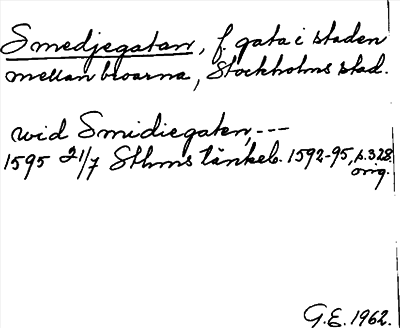 Smedjegatan, f. gata i staden
mellan broarna, Stockholms stad.
wid Smidiegaten, ---
1595 21/7 Sthms tänkeb. 1592-95, s. 328.
orig.
G.E. 1962.